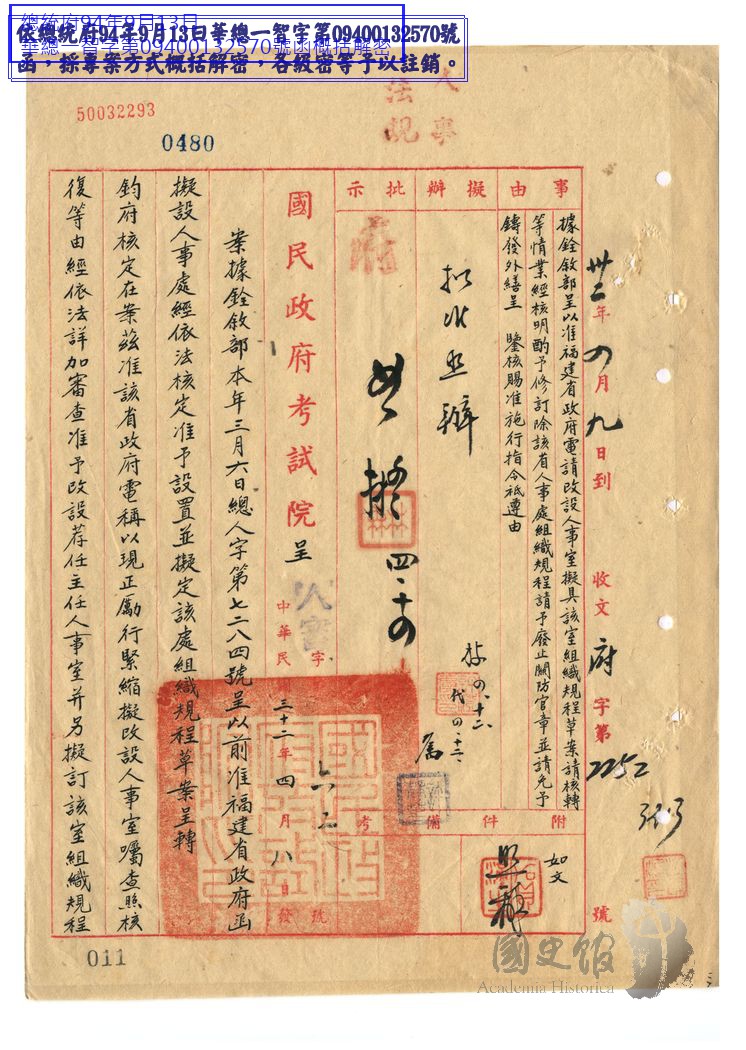 總統府94年9月13日
華總一智字第09400132570號函概括解密
依總統府94年9月13日華總一智字第09400132570號
函，採專案方式概括解密，各級密等予以註銷。
50032293
0480
人事
法規
卅二年四月九日到
收文府字第2252號
事由
據銓敘部呈以准福建省政府電請改設人事室擬具該室組織規程草案請核轉
等情業經核明酌予修訂除該省人事處組織規程請予廢止關防官章並請免予
鑄發外繕呈 鑒核賜准施行指令祗遵由
擬辦
批示
附件
如文
備考
國民政府考試院呈
字
中華民
三十二年四月八日發
號
案據銓敘部本年三月六日總人字第七二八四號呈以前准福建省政府函
擬設人事處經依法核定准予設置並擬定該處組織規程草案呈轉
鈞府核定在案茲准該省政府電稱以現正厲行緊縮擬改設人事室囑查照核
復等由經依法詳加審查准予改設荐任主任人事室并另擬訂該室組織規程
011
國史館
Academia Historica